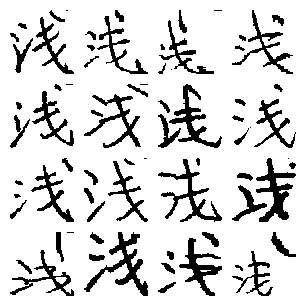 浅浅浅浅
浅浅浅浅
浅浅浅浅
浅浅浅浅